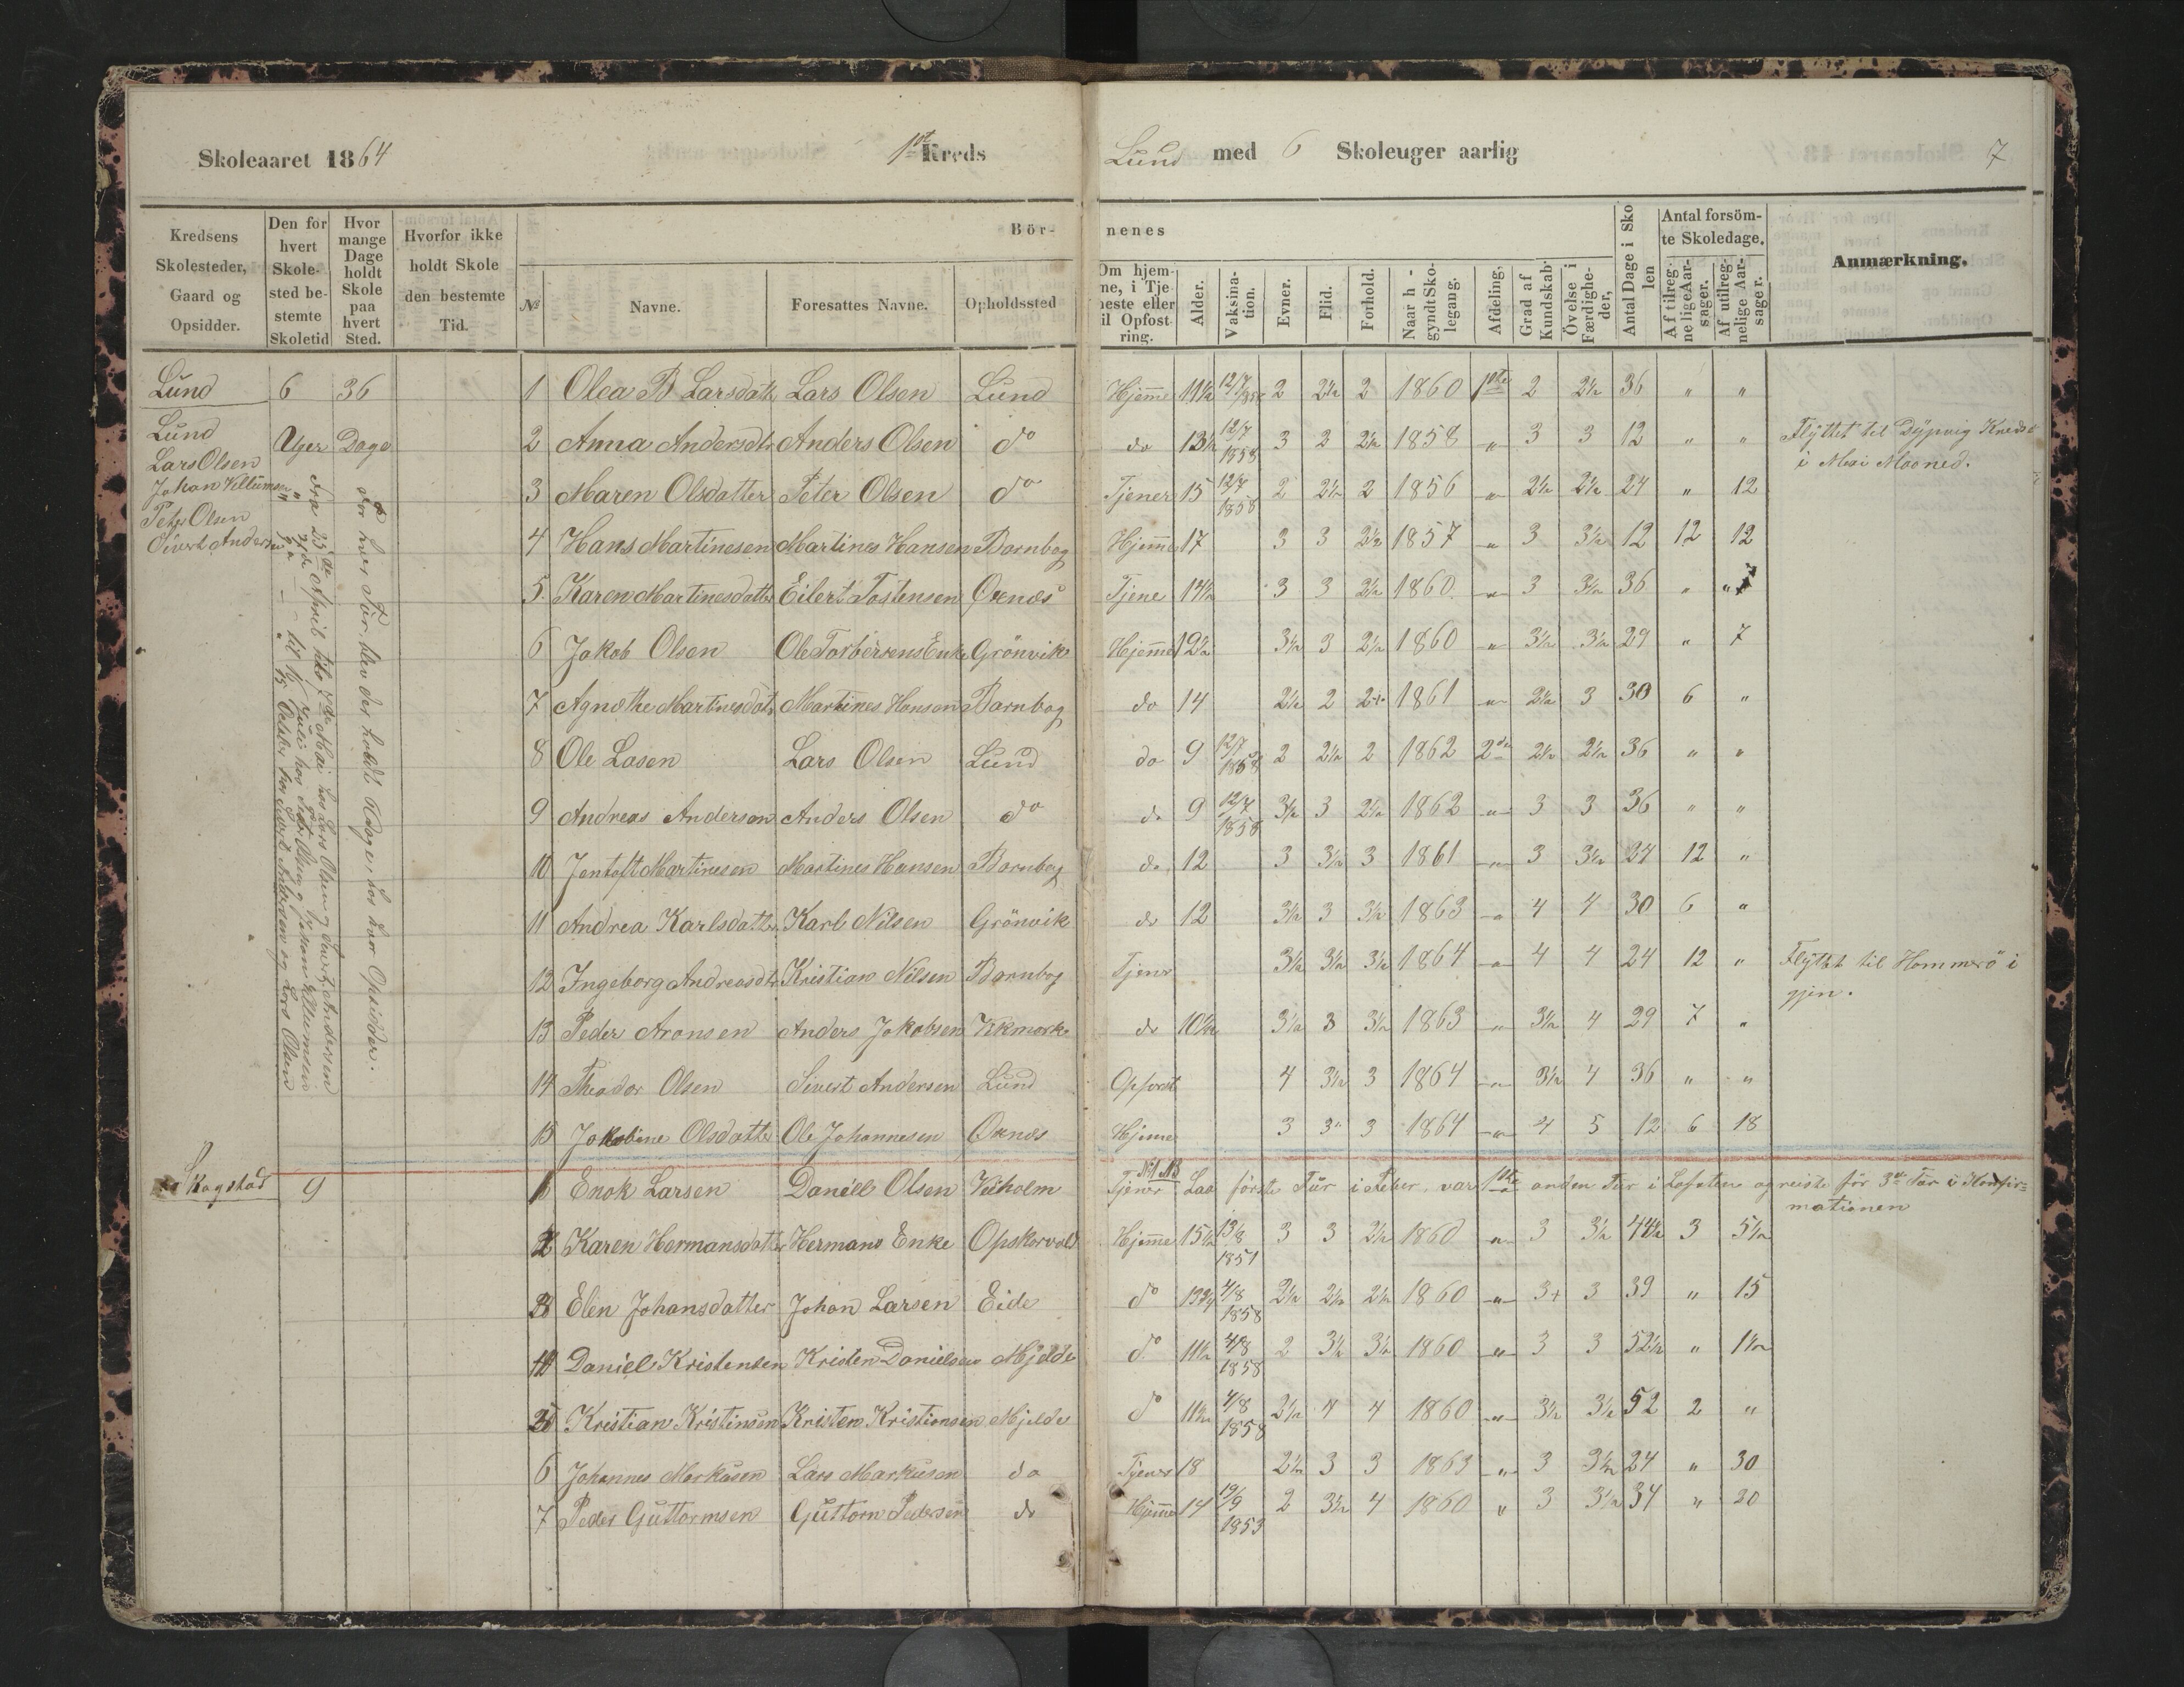 Skoleaaret 1864 1ste Kreds Lund med 6 Skoleuger aarlig 7
Kredsens Skolesteder, Gaard og Opsidder.
Den for hvert Skolested bestemte Skoletid
Hvor mange Dage holdt Skole paa hvert Sted.
Hvorfor ikke holdt Skole den bestemte Tid.
Börnenes
№
Navne.
Foresattes Navne.
Opholdssted
Om hjemme, i Tjeneste eller til Opfostring.
Alder.
Vaksination.
Evner.
Flid.
Forhold.
Naar begyndt Skolegang.
Afdeling,
Grad af Kundskab.
Övelse i Færdigheder,
Antal Dage i Skolen
Antal forsömte Skoledage.
Af tilregnelige Aarsager.
Af utilregnelige Aarsager.
Anmærkning.
Lund 6 Uger 36 Dage
Lund
Lars Olsen
Johan Villumsen
Peter Olsen
Sivert Andersen
For hver Tur blev der holdt Dage hos hver Opsidder.
1 Olea B Larsdatt Lars Olsen Lund Hjemme 11½ 12/7 2 2½ 2 1860 1ste 2 2½ 36 " "
2 Anna Andersdtr Anders Olsen do do 13½ 12/7 1858 3 2 2½ 1858 " 3 3 12 " " Flyttet til Dypvig Kreds
i Mai Maaned.
3 Maren Olsdatter Peter Olsen do Tjener 15 12/7 1858 2 2½ 2 1856 " 2½ 2½ 24 " 12
4 Hans Martinesen Martines Hansen Barnbog Hjemme 17 3 3 2½ 1857 " 3 3½ 12 12 12
5 Karen Martinesdatter Eilert Tostensen Öxnes Tjene 14½ 3 3 2½ 1860 " 3 3½ 36 " "
6 Jakob Olsen Ole Torbersens Enke Grönvik Hjemme 12½ 3½ 3 2½ 1860 " 3½ 3½ 29 " 7
7 Agnethe Martinesdatr Martines Hansen Barnbog do 14 2½ 2 2+ 1861 " 2½ 3 30 6 "
8 Ole Lasen Lars Olsen Lund do 9 12/7 1858 2 2½ 2 1862 2den 2½ 2½ 36 " "
9 Andreas Andersen Anders Olsen do do 9 12/7 1858 3½ 3 2½ 1862 " 3 3 36 " "
10 Jentoft Martinesen Martines Hansen Barnbog do 12 3 3½ 3 1861 " 3 3½ 24 12 "
11 Andrea Karlsdatter Karl Nilsen Grönvik do 12 3½ 3 3½ 1863 " 4 4 30 6 "
12 Ingeborg Andreasdtr Kristian Nilsen Barnbog Tjener 3½ 3½ 3½ 1864 " 4 4 24 12 " Flyttet til Hammerö i
gjen.
13 Peder Aronsen Anders Jakobsen Vikmark do 10½ 3½ 3 3½ 1863 " 3½ 4 29 7 "
14 Theodor Olsen Sivert Andersen Lund Opfost 4 3½ 3 1864 " 3½ 4 36 " "
15 Jakobine Olsdatter Ole Johannesen Öxnes Hjeme 3 3" 3 1864 " 4 5 12 6 18
Skogstad 9
1 Enok Larsen Daniel Olsen Veiholm Tjener Laa förste Tur i Feber, var anden Tur i Lofoten og reiste för 3die Tur i Konfir=
mationen
2 Karen Hermansdatter Hermans Enke Opskorvold Hjemme 15½ 13/8 1851 3 3 2½ 1860 " 3 3½ 44½ 3 5½
3 Elen Johansdatter Johan Larsen Eide do 13¾ 4/8 1858 2½ 2½ 2½ 1860 " 3+ 3 39 " 15
4 Daniel Kristensen Kristen Danielsen Mjelde do 11½ 4/8 1858 2 3½ 3½ 1860 " 3 3 52½ " 1½
5 Kristian Kristinsen Kristen Kristiansen Mjelde do 11½ 4/8 1858 2½ 4 4 1860 " 3½ 3½ 52 2 "
6 Johannes Markusen Lars Markusen do Tjener 18 2½ 3 3 1863 " 3 3½ 24 " 30
7 Peder Guttormsen Guttorm Pedersen do Hjemme 14 19/9 1853 2 3½ 4 1860 " 3 3½ 34 " 20